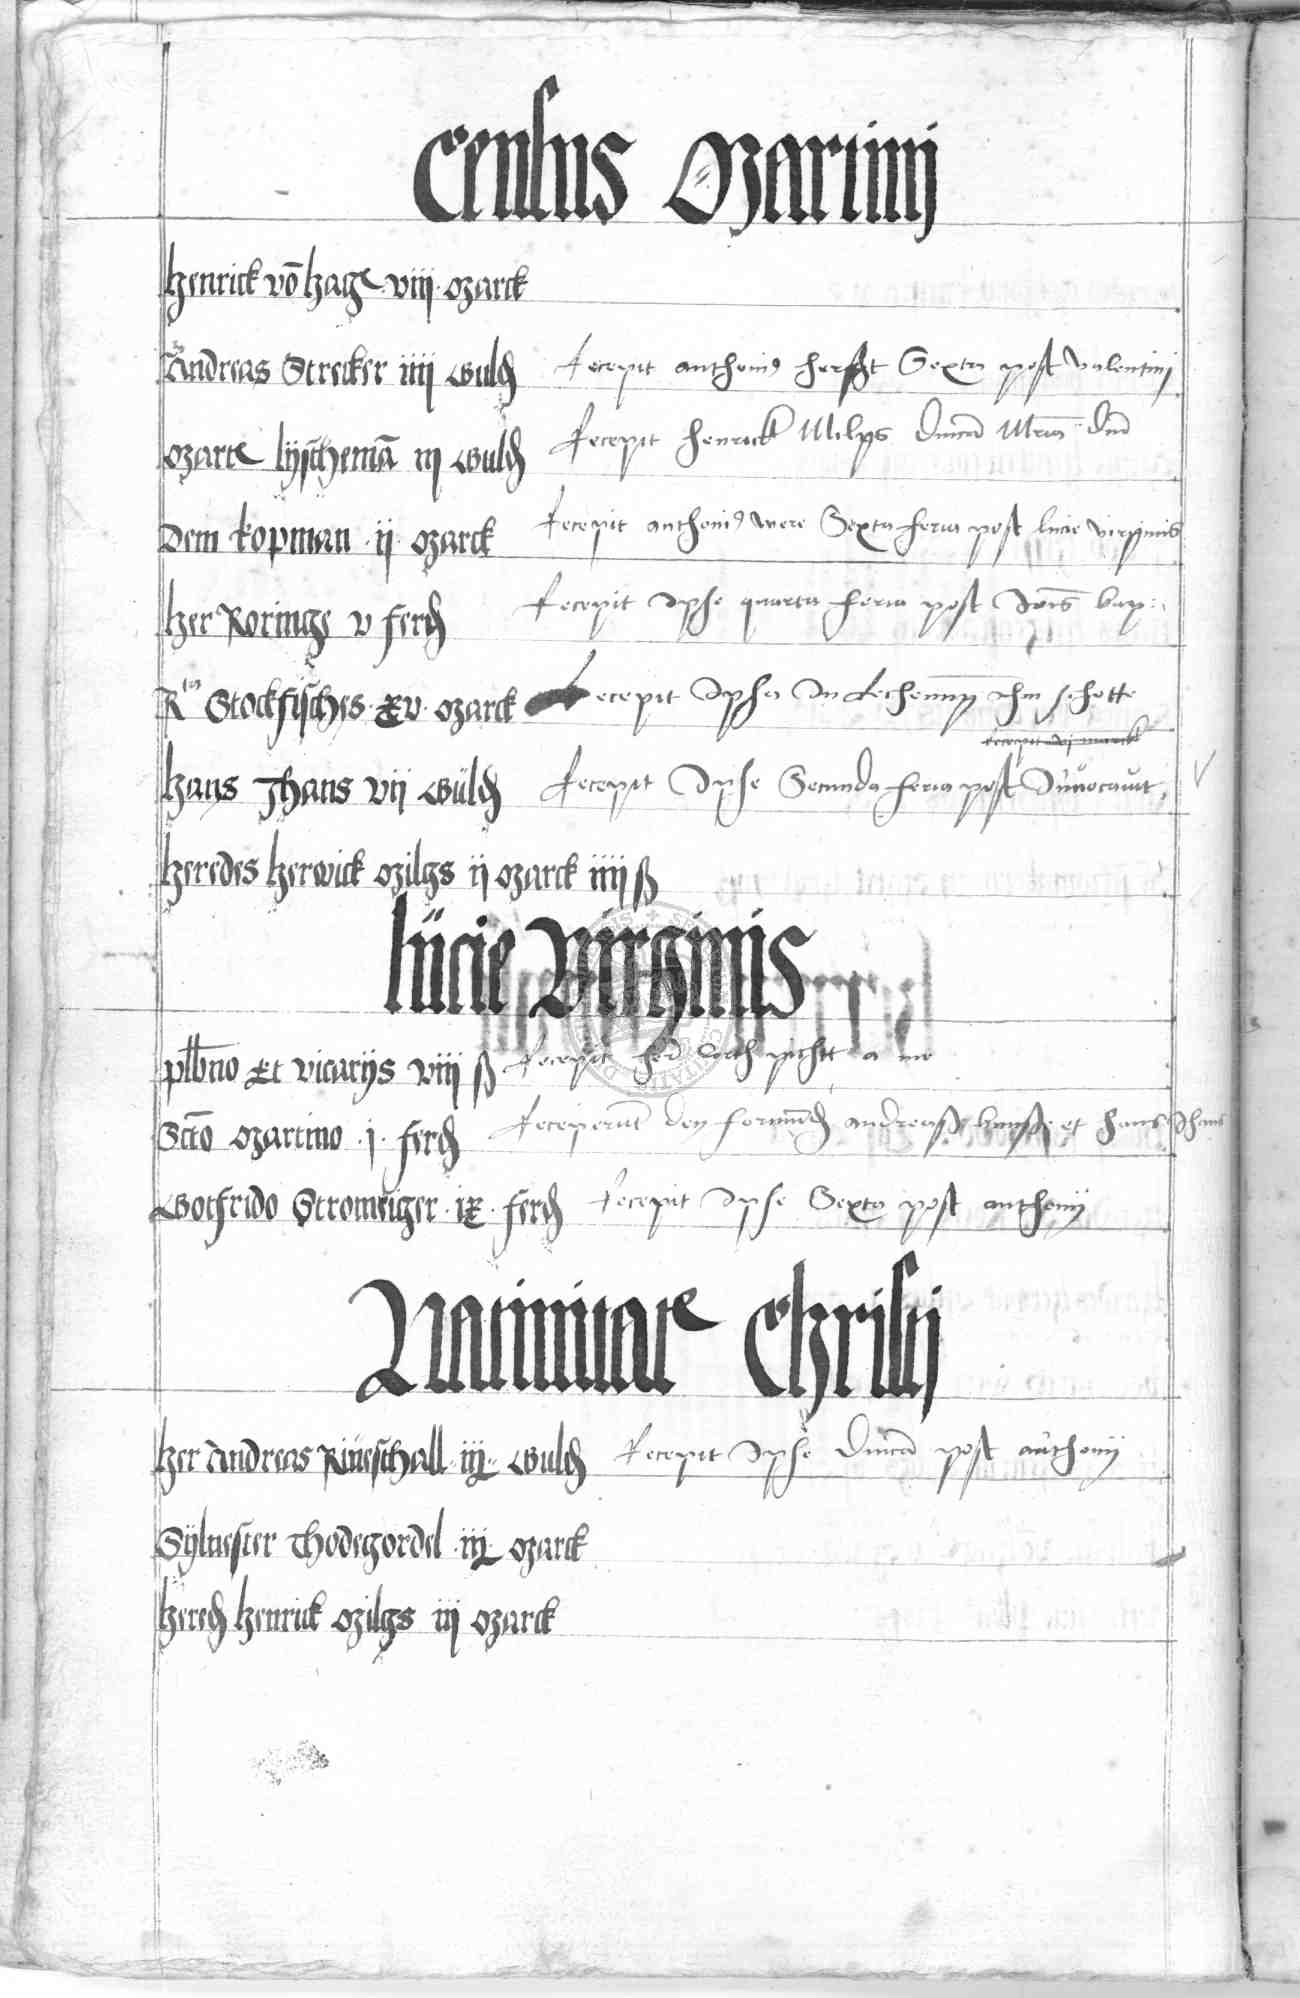 Census Martinij
Henrick vō Hage viij marck
Andreas Strecker iiij guld Recepit anthoni⁹ herst Sexta post valentinj
Marte lyschemā iij guld Recepit henrick Milgs
Dem kopman ij marck Recepit anthoni⁹ were Sexta feria post lucie virginis
Her Roringe v ferd Recepit Ipse quarta feria post Joīs bap
Stockfisches xv marck Recepit Ipse In
Recepit vj marck
Hans Jhans vij guld Recepit Ipse Secunda feria post Invocavit
Heredes Herwick Milgs ij marck iiij ß
Lucie Virginis
plbno Et vicarijs viij ß Recepit her a me
Scto Martino j ferd Receperūt den formūd andreas kunst et hans Jhans
Gotfrido Stromeiger ix ferd Recepit Ipse Sexta post anthonij
Natiuitate Christij
Her Andreas Rüeschall iij guld Recepit Ipse Dnīca post anthonij
Syluester Thodegordel iij marck
Hered Henrick Milgs iij marck